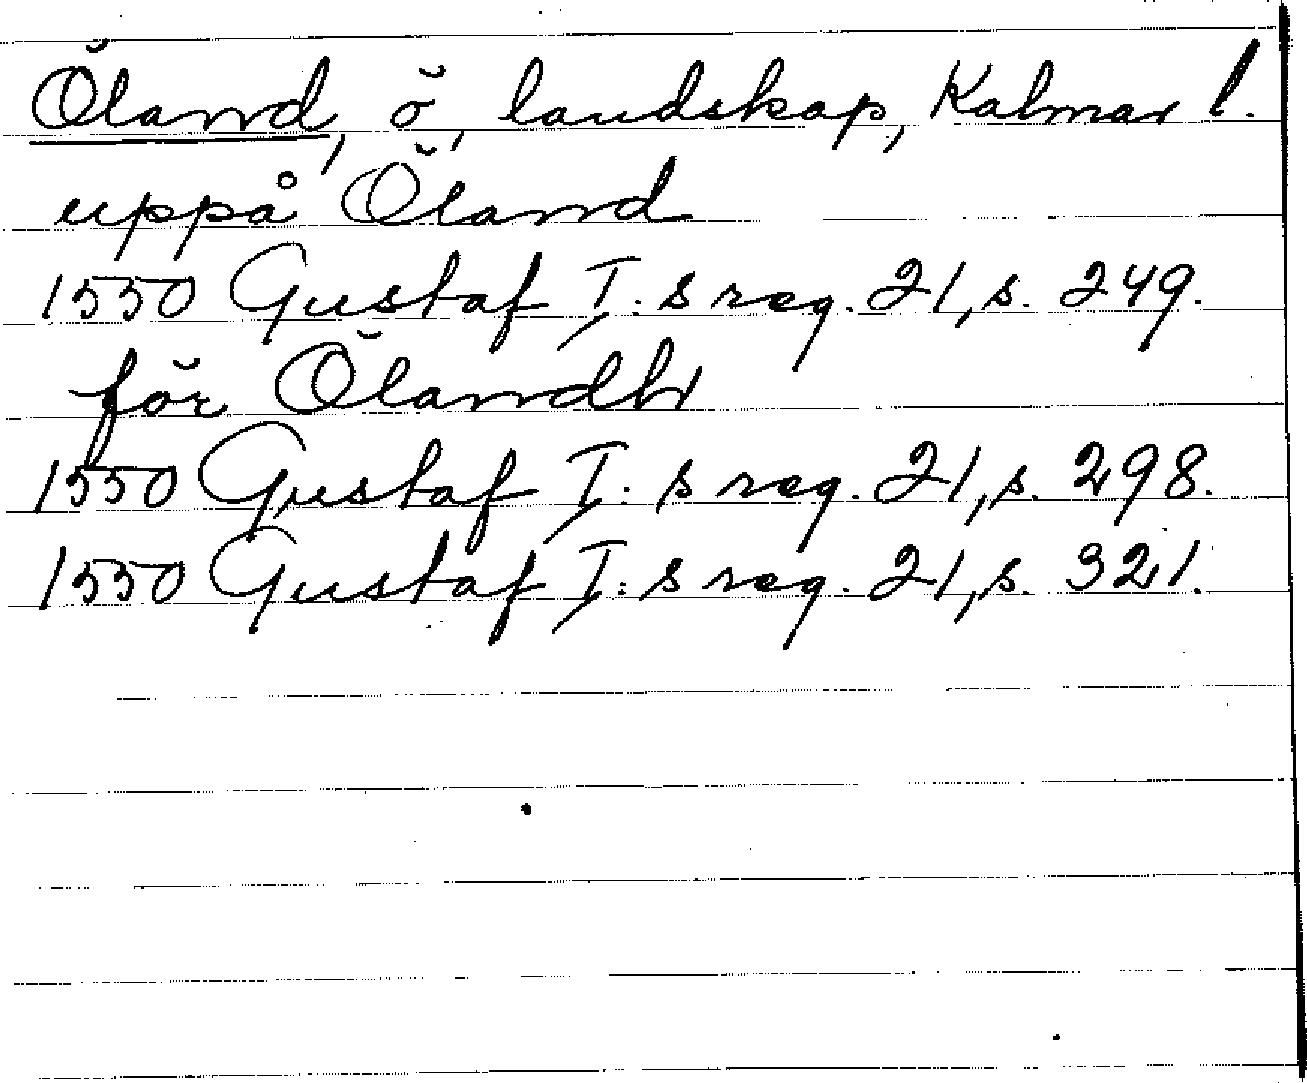 Öland, ö, landskap, Kalmar l.
uppå Öland
1550 Gustaf I:s reg. 21, s. 249.
för Ölandh
1550 Gustaf I:s reg. 21, s. 298.
1550 Gustaf I:s reg. 21, s. 321.